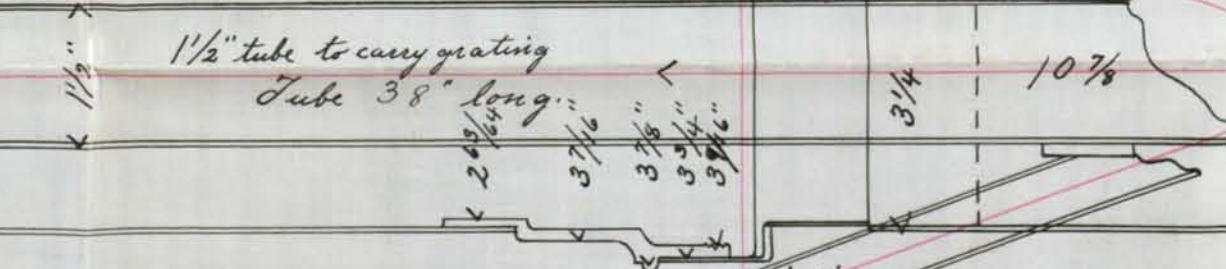 1 1/2" tube to carry grating
Tube 38" long.
1 1/2"
2 63/64"
3 7/16
3 7/8"
3 3/4"
3 9/16"
3 1/4
10 7/8